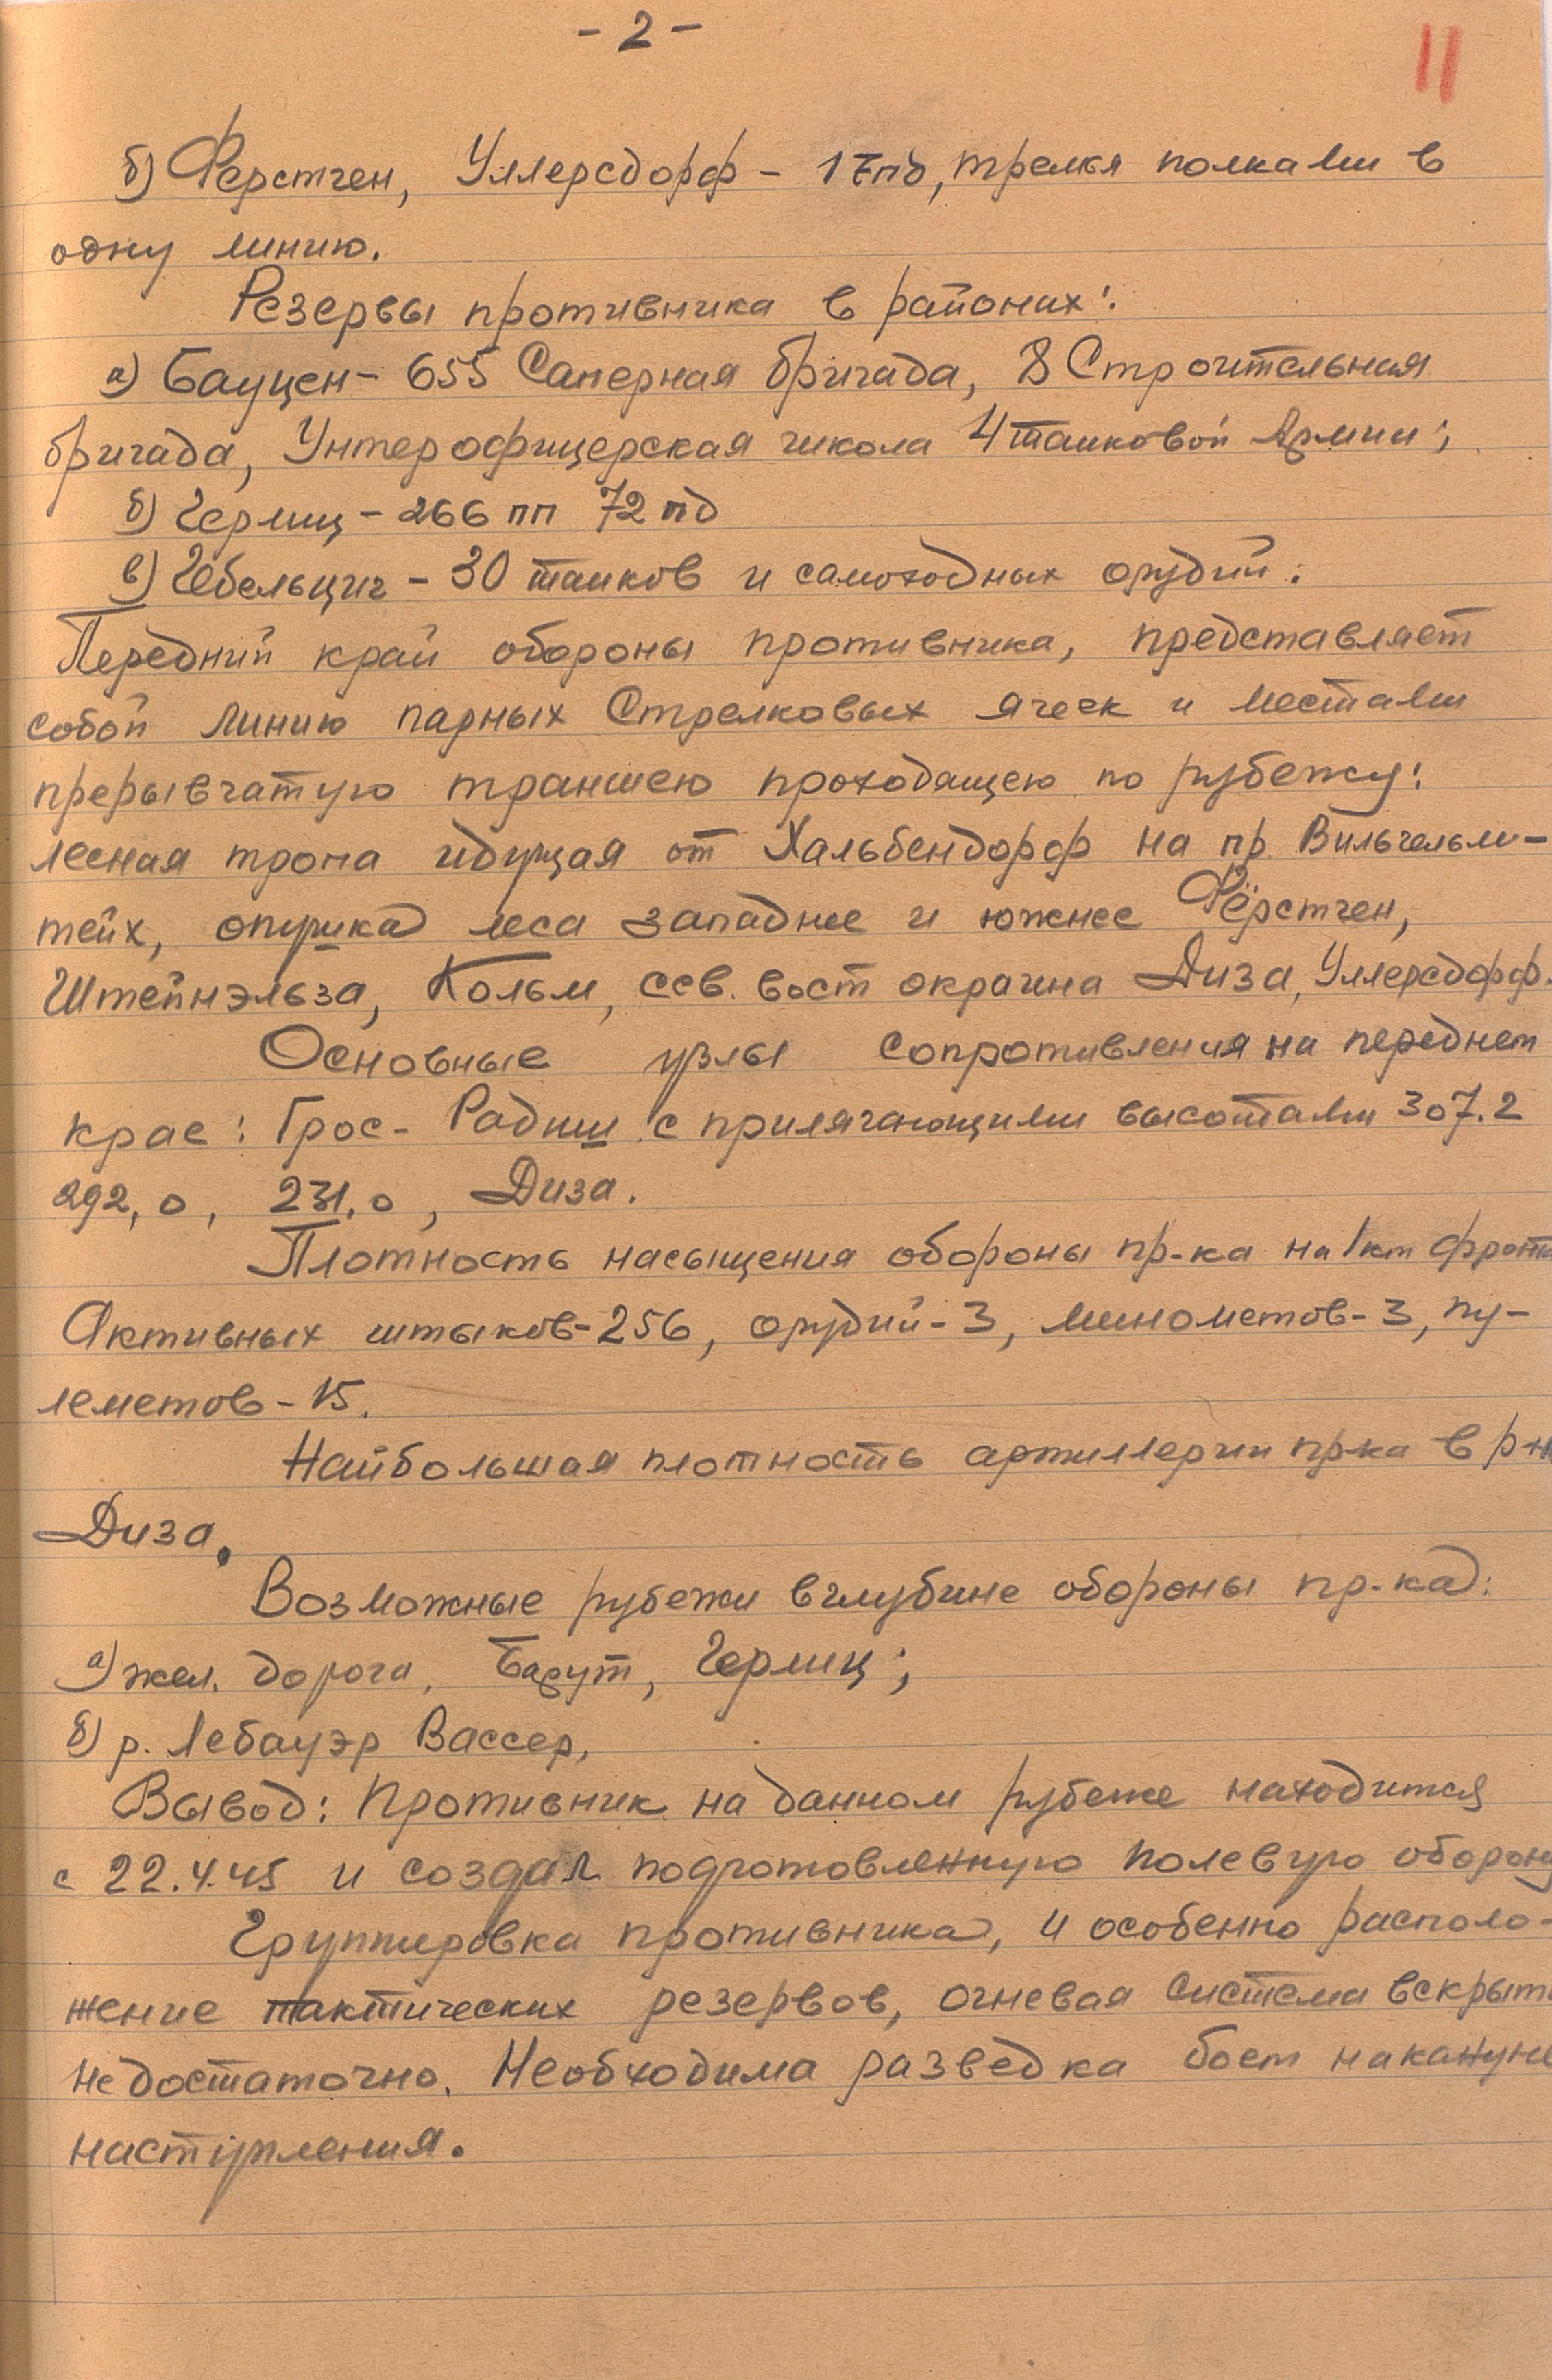 - 2 -
11
б) Ферстген, Уллерсдорф - 17пд, тремя полками в
одну линию.
Резервы противника в районах:
а) Бауцен - 655 Саперная бригада, 8 Строительная
бригада, Унтерофицерская школа 4 танковой Армии;
б) Герлиц - 266 пп 72 пд
в) Гебельциг - 30 танков и самоходных орудий.
Передний край обороны противника, представляет
собой линию парных Стрелковых ячеек и местами
прерывчатую траншею проходящею по рубежу:
лесная тропа идущая от Хальбендорф на пр. Вильгельм-
тейх, опушка леса западнее и южнее Фёрстген,
Штейнэльза, Кольм, сев. вост окраина Диза, Уллерсдорф.
Основные узлы сопротивления на переднем
крае: Грос-Радиш с прилягающими высотами 307.2
292,0, 231.0, Диза.
Плотность насыщения обороны пр-ка на 1 км фронта
Активных штыков-256, орудий-3, минометов-3, пу-
леметов-15.
Найбольшая плотность артиллерии пр-ка в р-не
Диза.
Возможные рубежи в глубине обороны пр-ка:
а) жел. дорога, Барут, Герлиц;
б) р. Лебауэр Вассер,
Вывод: Противник на данном рубеже находится
с 22.4.45 и создал подготовленную полевую оборону
Группировка противника, и особенно располо-
жение тактических резервов, огневая система вскрыты
недостаточно. Необходима разведка боем накануне
наступления.